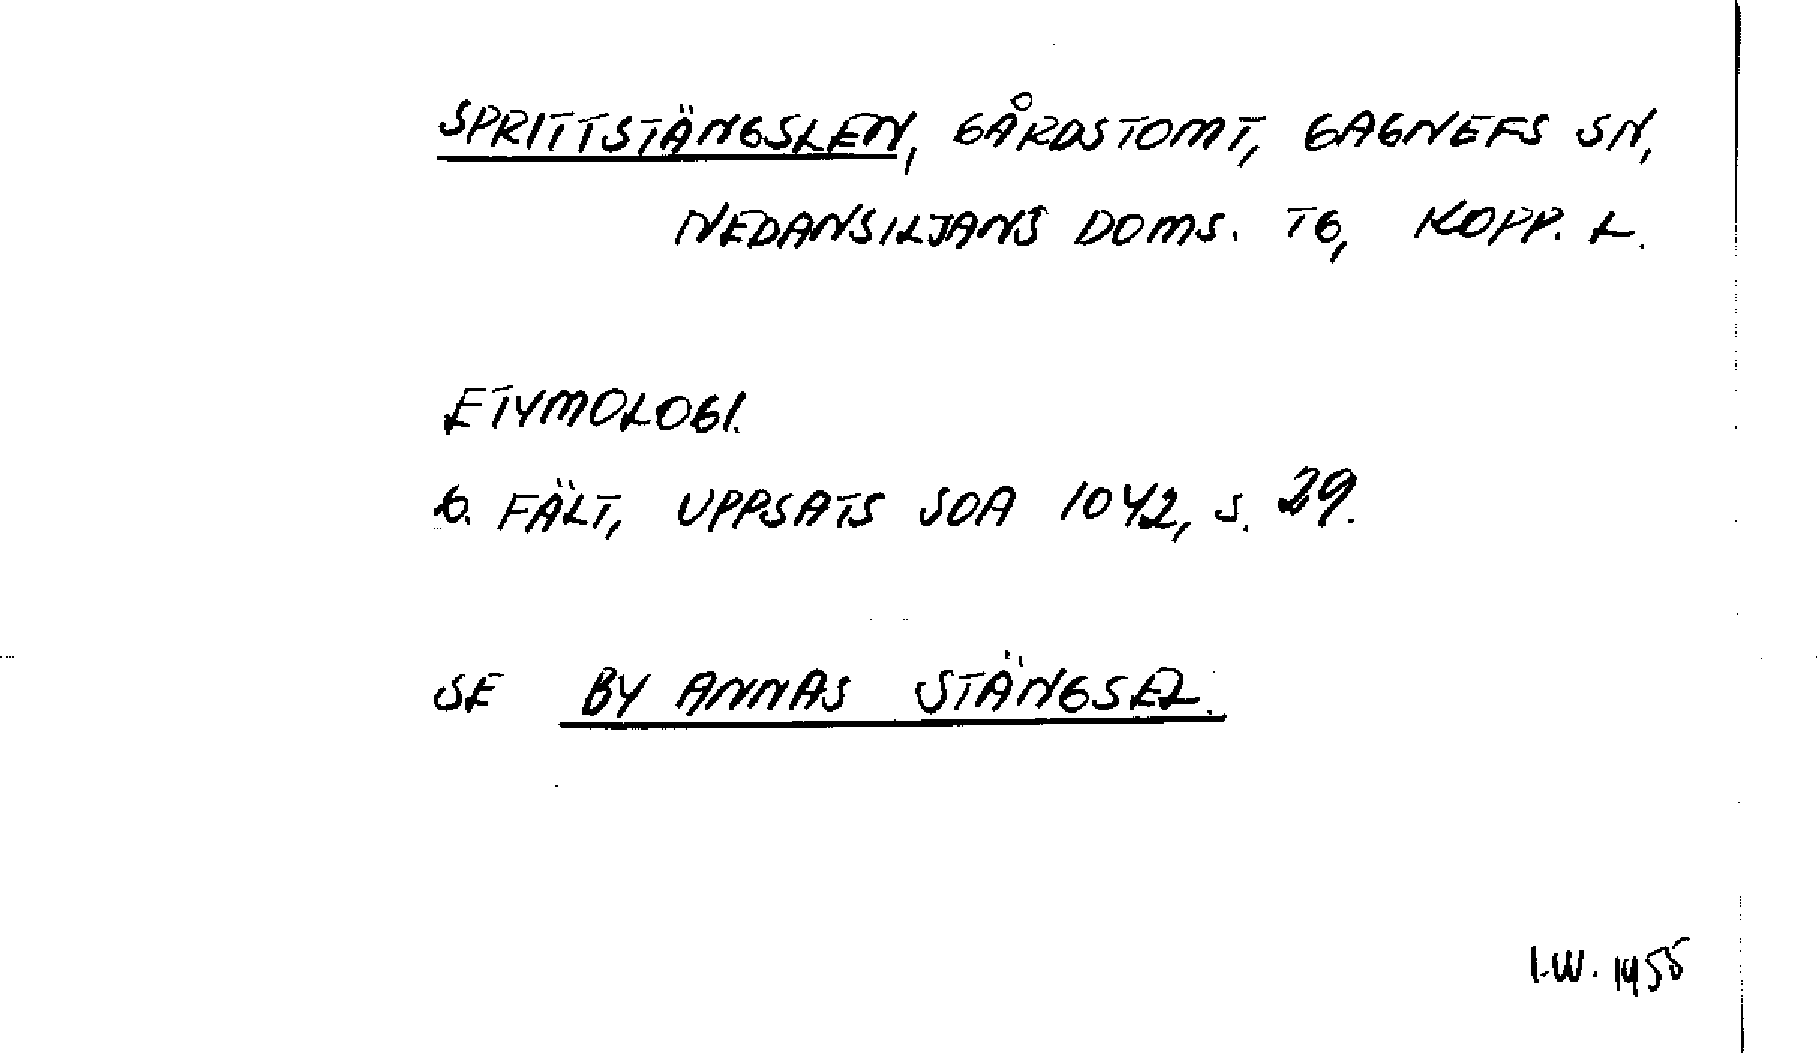 SPRITTSTÄNGSLEN, GÅRDSTOMT, GAGNEFS SN,
NEDANSILJANS DOMS. TG, KOPP. L.
ETYMOLOGI.
G. FÄLT, UPPSATS SOA 1042, S. 29.
SE BY ANNAS STÄNGSEL.
I.W. 1955